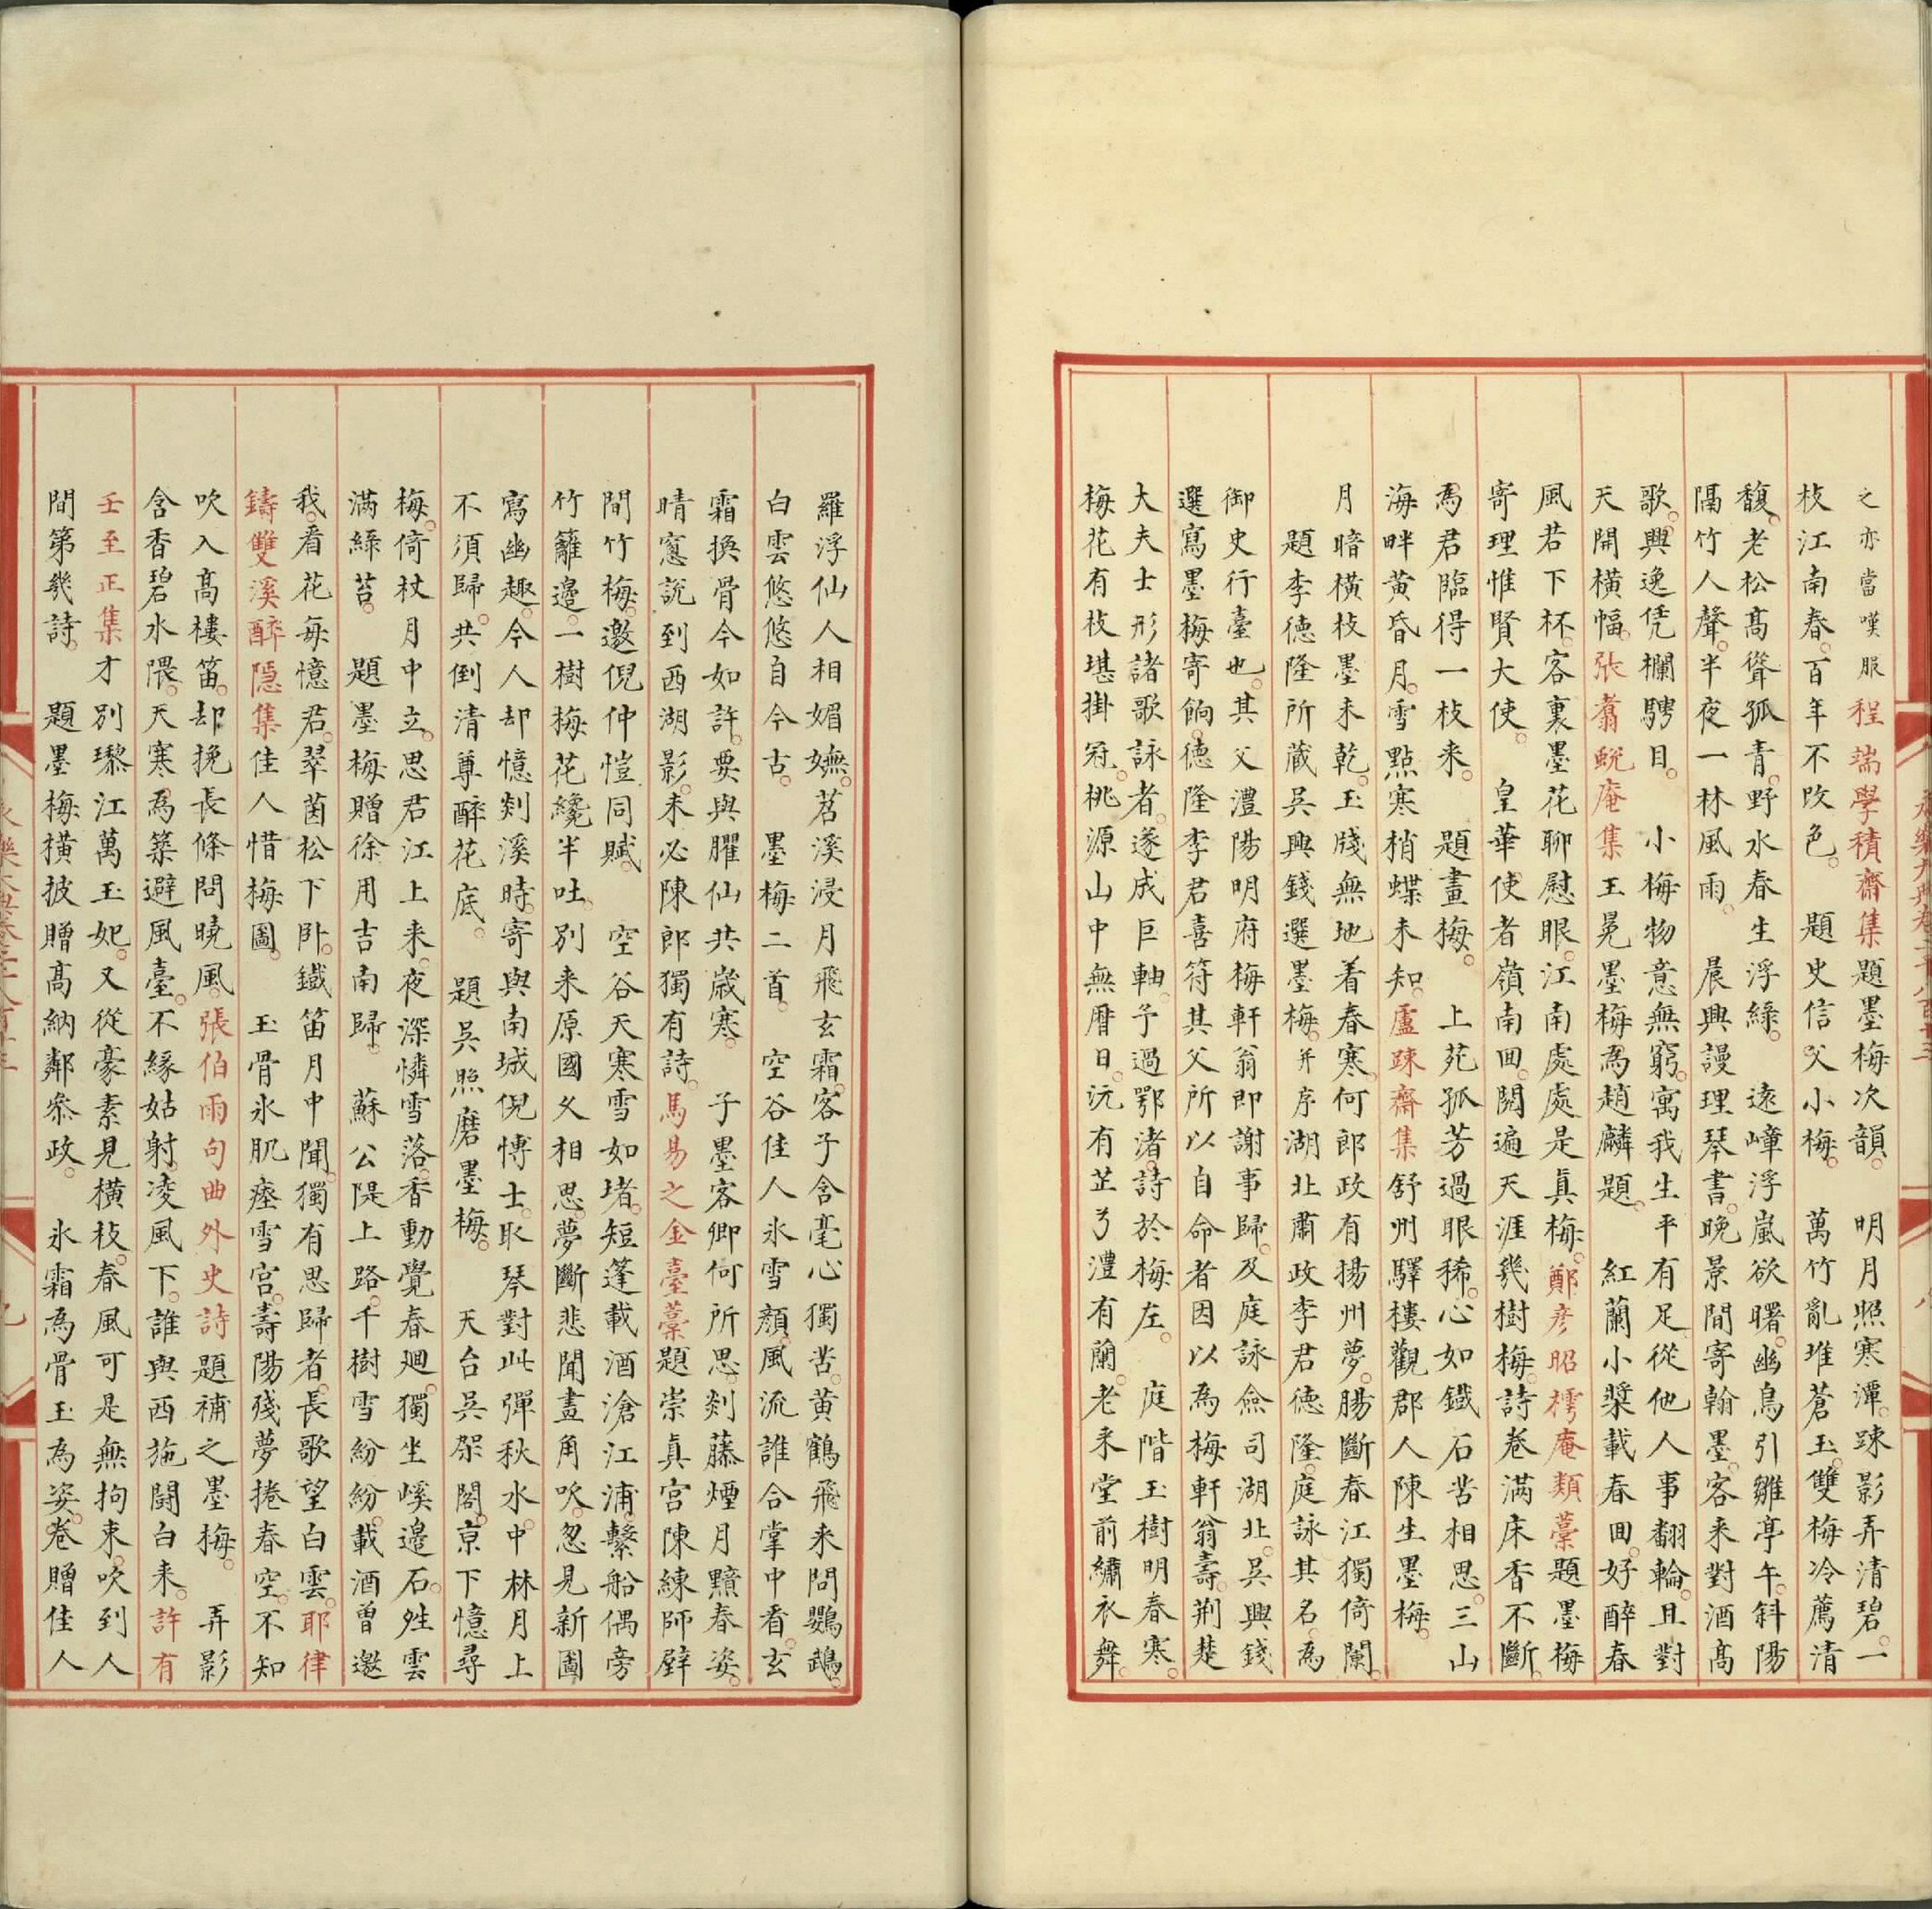 之亦當嘆服程端學積齋集題墨梅次韻。　明月照寒潭。踈影弄清碧。一
枝江南春。百年不改色。　題史信父小梅。　萬竹亂堆蒼玉。雙梅冷薦清
馥。老松高聳孤青。野水春生浮綠。　遠嶂浮嵐欲曙。幽鳥引雛亭午。斜陽
隔竹人聲。半夜一林風雨。　晨興謾理琴書。晚景閒寄翰墨。客來對酒高
歌。興逸凭欄騁目。　小梅物意無窮。寓我生平有足。從他人事翻輪。且對
天開橫幅。張翥蛻庵集王冕墨梅為趙麟題。　紅蘭小槳載春回。好醉春
風君下杯。客裏墨花聊慰眼。江南處處是真梅。鄭彥昭樗庵類藁題墨梅
寄理惟賢大使。　皇華使者嶺南回。閱遍天涯幾樹梅。詩卷滿床香不斷。
為君臨得一枝來。　題畫梅。　上苑孤芳過眼稀。心如鐵石苦相思。三山
海畔黃昏月。雪點寒梢蝶未知。盧踈齋集舒州驛樓觀郡人陳生墨梅。
月暗橫枝墨未乾。玉牋無地着春寒。何郎政有揚州夢。腸斷春江獨倚闌。
題李德隆所藏吳興錢選墨梅。并序湖北肅政李君德隆。庭詠其名。為
御史行臺也。其父澧陽明府梅軒翁即謝事歸。及庭詠僉司湖北。吳興錢
選寫墨梅寄餉。德隆李君喜符其父所以自命者因以為梅軒翁壽。荆楚
大夫士形諸歌詠者。遂成巨軸。予過鄂渚。詩於梅左。　庭階玉樹明春寒。
梅花有枝堪掛冠。桃源山中無曆日。沅有芷兮澧有蘭。老來堂前繡衣舞。
羅浮仙人相媚嫵。苕溪浸月飛玄霜。客子含毫心獨苦。黃鶴飛來問鸚鵡。
白雲悠悠自今古。　墨梅二首。　空谷佳人氷雪顏。風流誰合掌中看。玄
霜換骨今如許。要與臞仙共歲寒。　子墨客卿何所思。剡藤煙月黯春姿。
晴窻說到西湖影。未必陳郎獨有詩。馬易之金臺藁題崇真宮陳練師壁
間竹梅。邀倪仲愷同賦。　空谷天寒雪如堵。短蓬載酒滄江浦。繫船偶旁
竹籬邉。一樹梅花纔半吐。別來原國久相思。夢斷悲聞畫角吹。忽見新圖
寫幽趣。今人却憶剡溪時。寄與南城倪博士。取琴對此彈秋水。中林月上
不須歸。共倒清尊醉花底。　題吳照磨墨梅。　天台吳架閣。京下憶尋
梅。倚杖月中立。思君江上來。夜深憐雪落。香動覺春廻。獨坐嵠邉石。姓雲
滿綠苔。　題墨梅贈徐用吉南歸。　蘇公隄上路。千樹雪紛紛。載酒曾邀
我。看花每憶君。翠茵松下卧。鐵笛月中聞。獨有思歸者。長歌望白雲。耶律
鑄雙溪醉隱集佳人惜梅圖。　玉骨氷肌瘞雪宮。壽陽殘夢捲春空。不知
吹入高樓笛。却挽長條問曉風。張伯雨句曲外史詩題補之墨梅。　弄影
含香碧水隈。天寒為築避風臺。不緣姑射凌風下。誰與西施鬪白來。許有
壬至正集才別瓈江萬玉妃。又從豪素見橫枝。春風可是無拘束。吹到人
間第幾詩。　題墨梅橫披贈高納鄰叅政。　氷霜為骨玉為姿。卷贈佳人